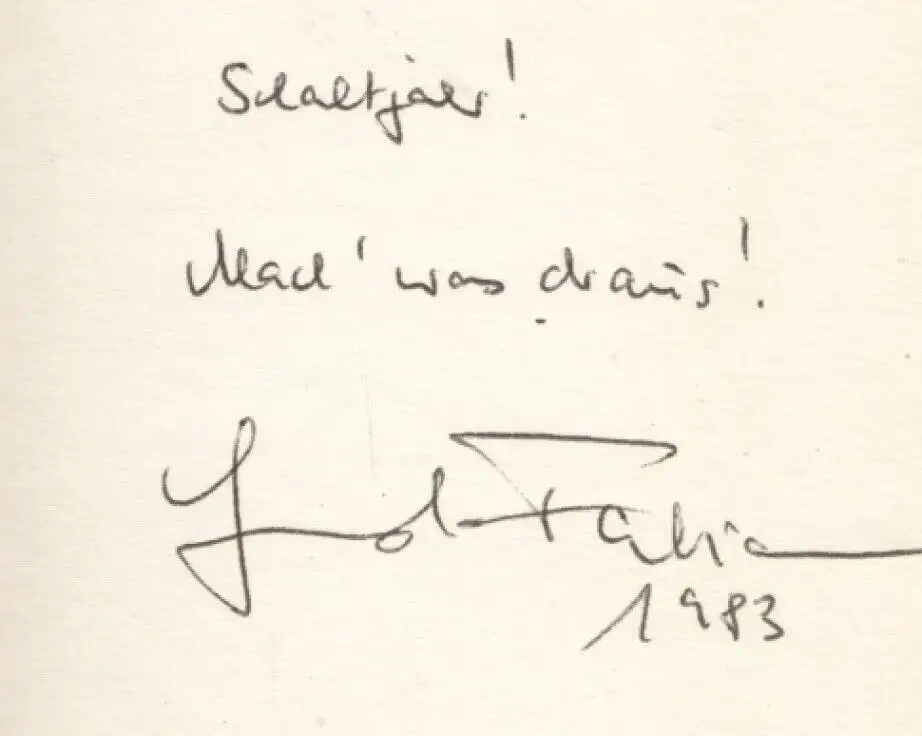 Schaltjahr!
Mach' was draus!
1983